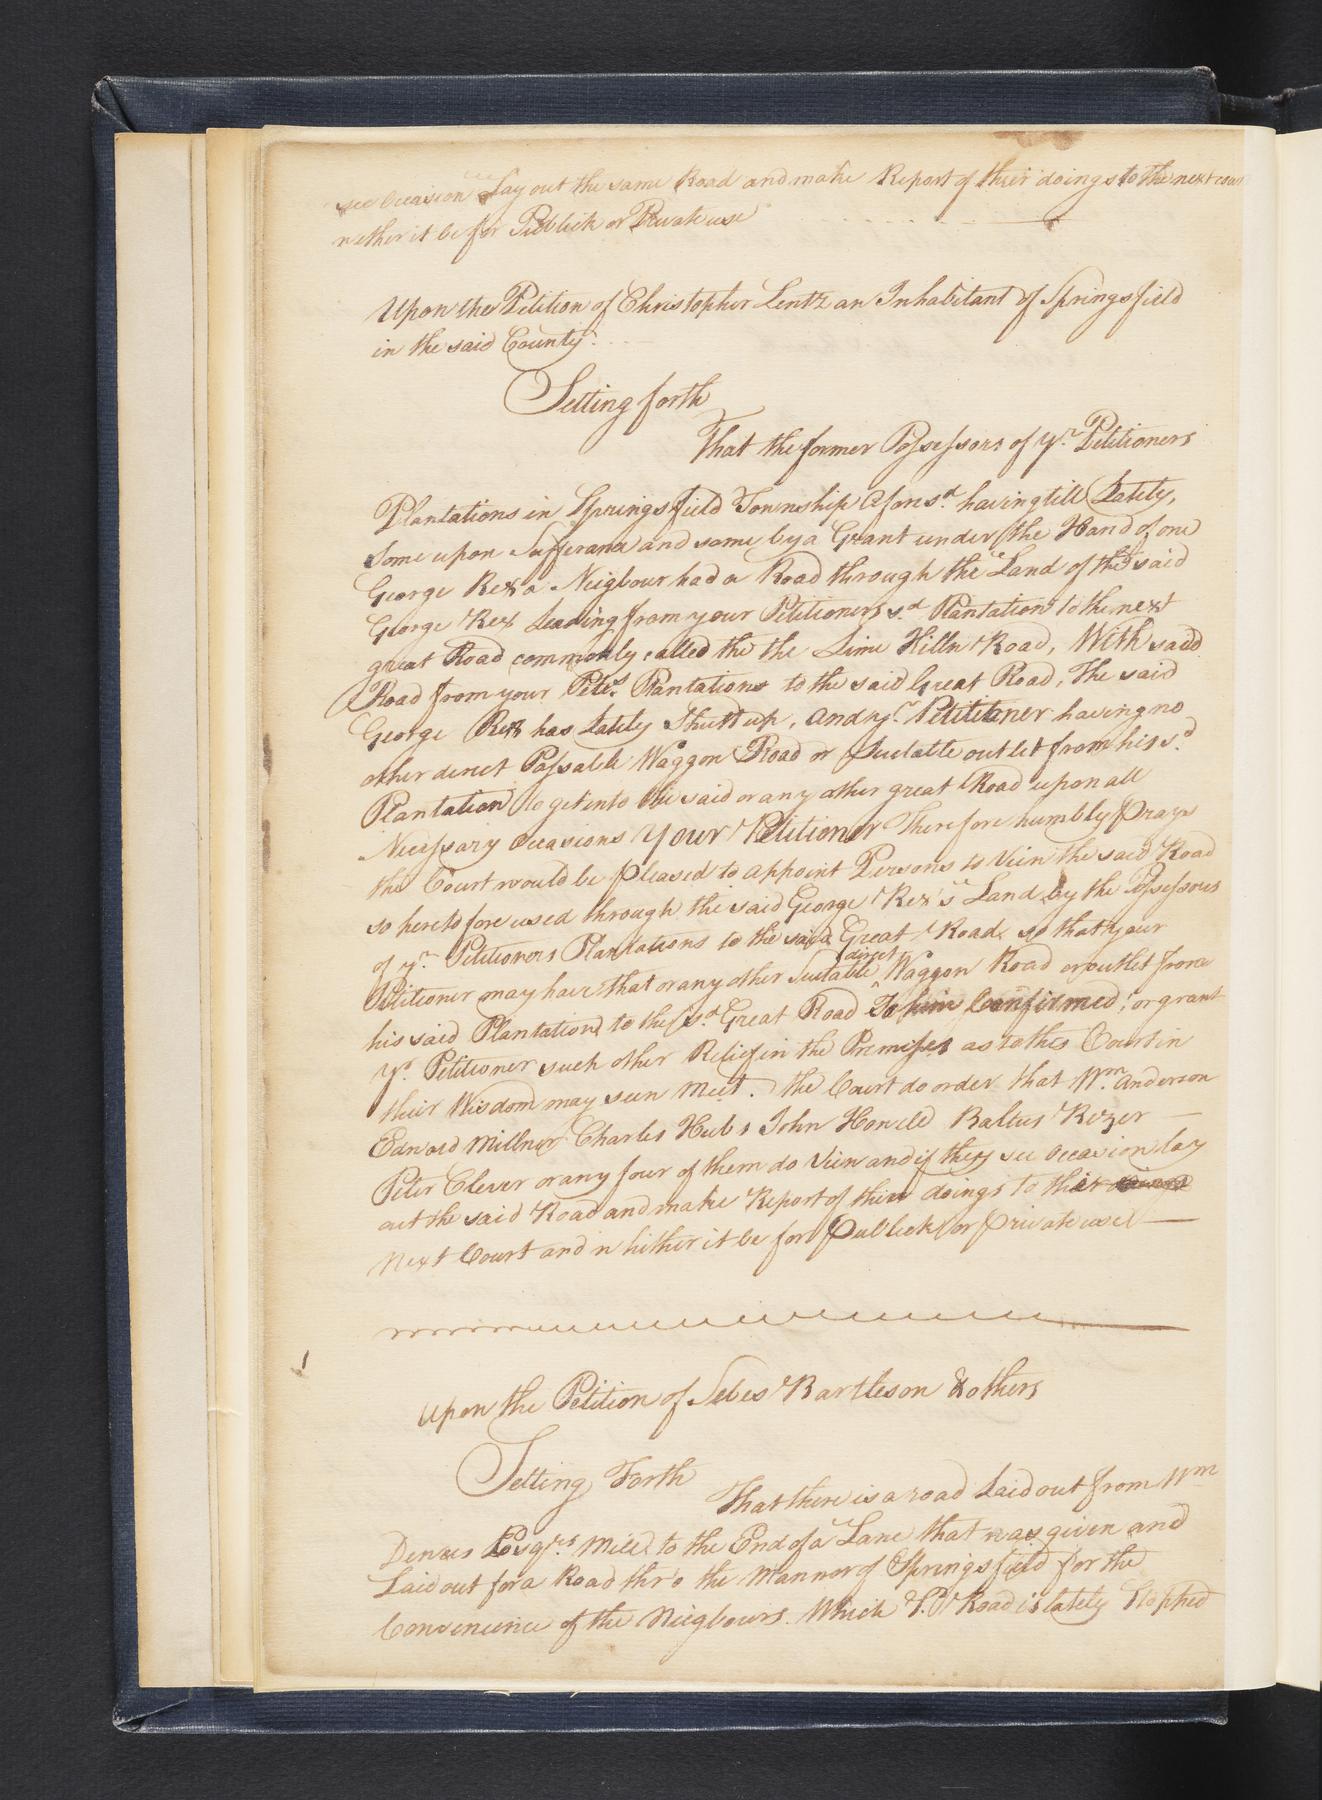 see Occasion Lay out the same Road and make Report of their doings to the next cour
wether it be for Publick or Private use
Upon the Petition of Christopher Lentz an Inhabitant of Springsfield
in the said County
Setting forth
That the former Possessors of yr. Petitioners
Plantations in Springsfield Township Afonsd. having till Lately,
Some upon Sufferance and some by a Grant under the Hand of one
George Rex a Neigbour had a Road through the Land of the said
George Rex Leading from your Petitioners sd. Plantation to the next
great Road commonly called the the Lime Killn Road, With said
Road from your Petrs. Plantations to the said Great Road, The said
George Rex has Lately Shutt up, and yr. Petitioner having no
other direct Passable Waggon Road or Suitable outlet from his sd.
Plantation to get into the said or any other great Road upon all
Necessary Occasions Your Petitioner Therefore humbly Prays
the Court would be pleased to appoint Persons to View the said Road
so heretofore used through the said George Rex's Land by the Possessors
of yr. Petitioners Plantations to the said Great Road so that your
Petitioner may have that or any other Suitable direct Waggon Road or outlet from
his said Plantation to the sd. Great Road To him Confirmed, or grant
yr. Petitioner such other Relief in the Premises as to this Court in
their Wisdom may seen Meet. the Court do order that Wm. Anderson
Edward Millner Charles Hubs John Honeld Baltus Rezer
Peter Clever or any four of them do View and if they see Occasion lay
out the said Road and make Report of their doings to their
Next Court and whither it be for Publick or private use
Upon the Petition of Sebes Bartleson & others
Setting Forth
That there is a road Laid out from Wm
Denees Esqrs. Mill to the End of a Lane that was given and
Laid out for a Road thro the Mannor of Springsfield for the
Convenience of the Neigbours. Which Sd. Road is lately Stopped